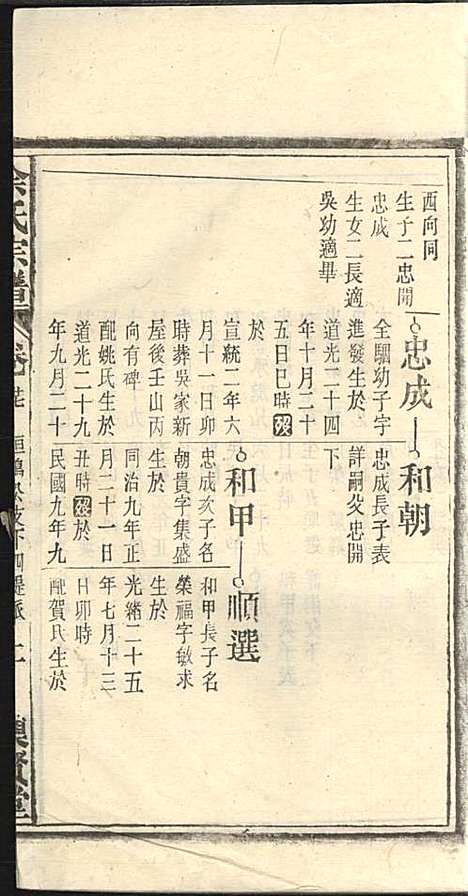 西向同
生子二忠開
忠成
生女二長適
吳幼適畢
忠成
全駰幼子字
進發生於
道光二十四
年十月二十
五日巳時歿
於
宣統二年六
月十一日卯
時葬吳家新
屋後壬山丙
向有碑
配姚氏生於
道光二十九
年九月二十
和朝
忠成長子表
詳嗣父忠開
下
和甲
忠成次子名
朝貴字集盛
生於
同治九年正
月二十一日
丑時歿於
民國九年九
順選
和甲長子名
榮福字敏求
生於
光緒二十五
年七月十三
日卯時
配賀氏生於
余氏宗譜